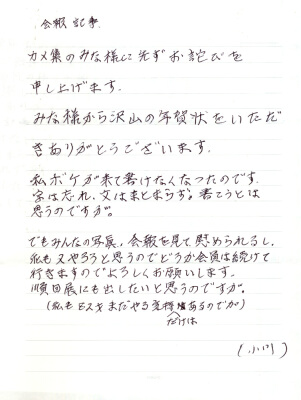 会報記事
カメ集のみな様に先ずお詫びを
申し上げます.
みな様から沢山の年賀状をいただ
きありがとうございます.
私ボケが来て書けなくなったのです.
字は忘れ、文はまとまらず。書こうとは
思うのですが。
でもみんなの写展,会報を見て慰められるし,
私も又やろうと思うのでどうか会員は続けて
行きますのでよろしくお願いします.
順回展にも出したいと思うのですが.
(私も まだやる気様あるのでが)
だけは
(小川)